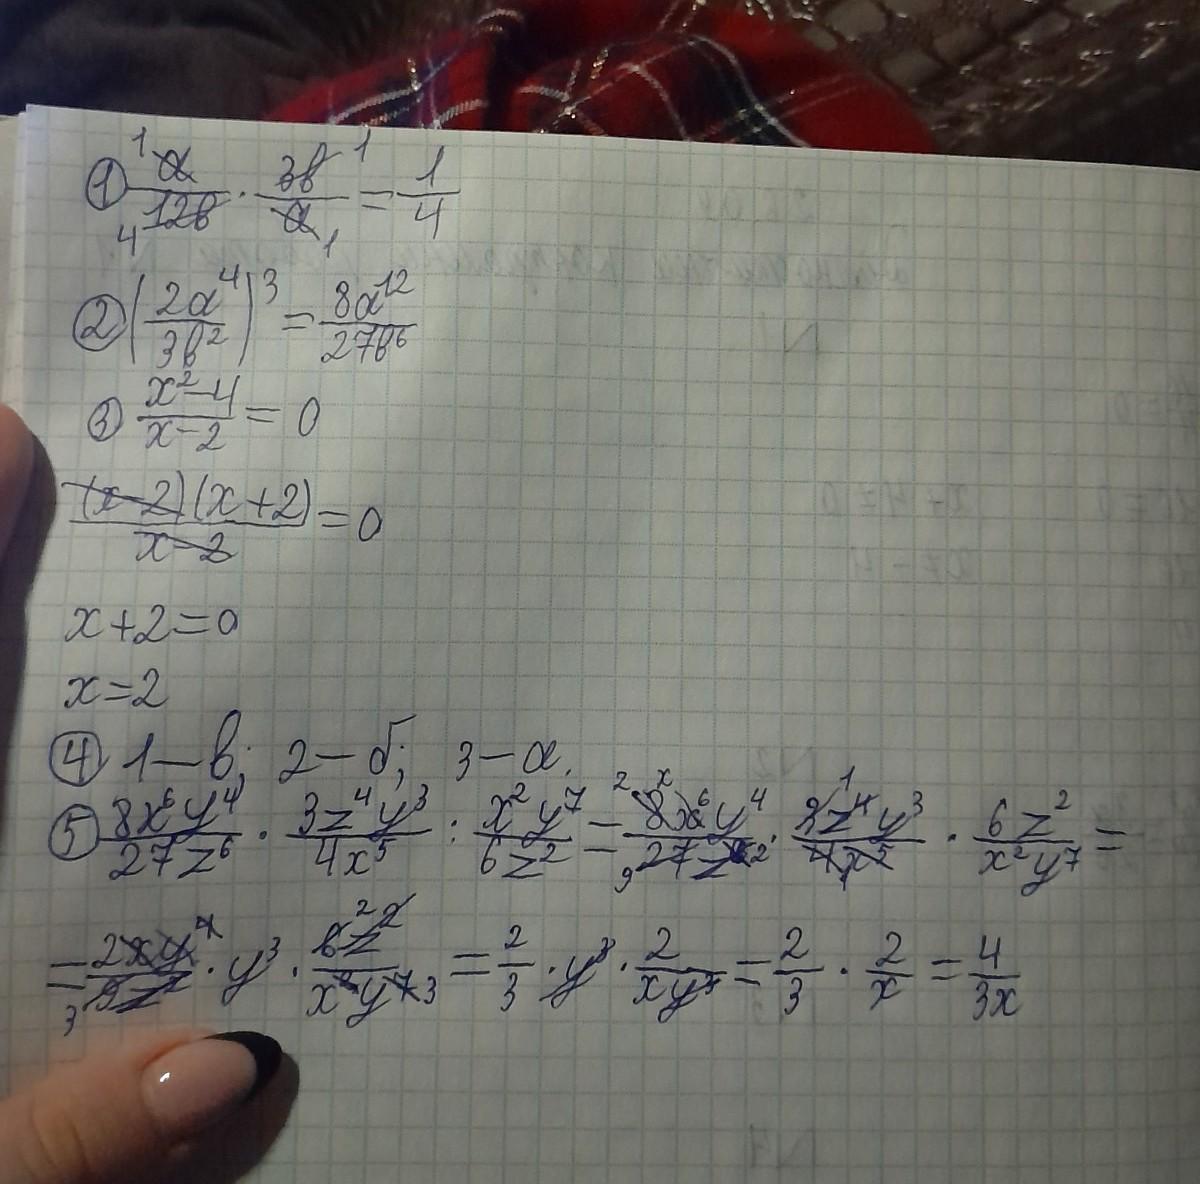 ① a/12b · 3b/a = 1/4
② (2a⁴/3b²)³ = 8a¹²/27b⁶
③ x²-4/x-2 = 0
(x-2)(x+2)/x-2 = 0
x+2=0
x=2
④ 1-в; 2-б; 3-а.
⑤ 8x⁶y⁴/27z⁶ · 3z⁴y³/4x⁵ : x²y⁷/6z² = 8x⁶y⁴/27z⁶ · 3z⁴y³/4x⁵ · 6z²/x²y⁷ =
= 2xy⁴/9z² · y³ · 6z²/x²y⁷ = 2/3 · y³ · 2/xy³ = 2/3 · 2/x = 4/3x